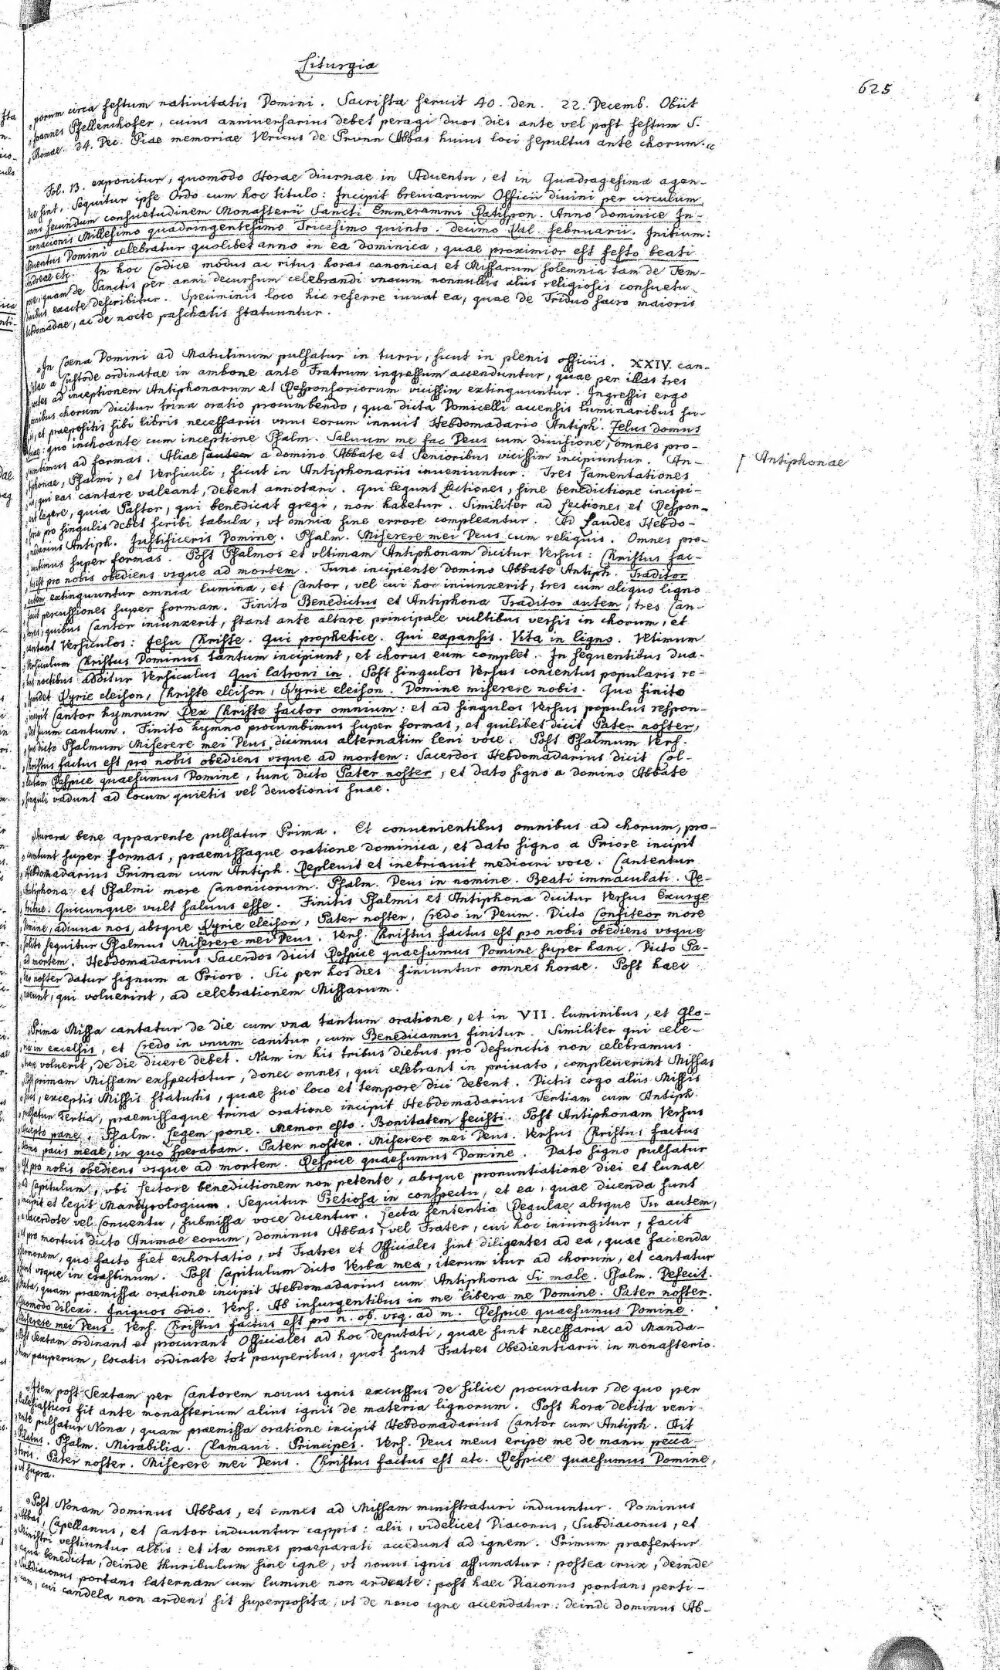 Liturgia
625
porum circa festum nativitatis Domini. Sacrista servit 40. den. 22. Decemb. Obiit
Joannes Psellenchofer, cuius anniversarius debet peragi duos dies ante vel post festum S.
Thomae. 24. Dec. Piae memoriae Vericus de Prunn Abbas huius loci sepultus ante chorum.
Fol. 13. exponitur, quomodo Horae diurnae in Adventu, et in Quadragesima agen-
dae sint. Sequitur ipse Ordo cum hoc titulo: Incipit breviarium Officii divini per circulum
anni secundum consuetudinem Monasterii Sancti Emmerammi Ratispon. Anno dominice In-
carnacionis Millesimo quadringentesimo Tricesimo quinto. decimo Kal. februarii. Initium:
Adventus Domini celebratur quolibet anno in ea dominica, quae proximior est festo beati
Andreae etc. In hoc Codice modus ac ritus horas canonicas et Missarum solemnia tam de Tem-
pore, quam de Sanctis per anni decursum celebrandi unacum nonnullis aliis religiosis consuetu-
dinibus exacte describitur. Speciminis loco hic referre iuvat ea, quae de Triduo sacro maioris
hebdomadae, ac de nocte paschatis statuuntur.
In Coena Domini ad Matutinum pulsatur in turri, sicut in plenis officiis. XXIV can-
delae a Custode ordinatae in ambone ante Fratrum ingressum accenduntur, quae per illas tres
noctes ad inceptionem Antiphonarum et Responsoriorum vicissim extinguuntur. Ingressis ergo
omnibus chorum dicitur trina oratio procumbendo, qua dicta Domicelli accensis luminaribus su-
is, et praepositis sibi libris necessariis unus eorum innuit Hebdomadario Antiph. Zelus domus
tuae: quo inchoante cum inceptione Psalm. Salvum me fac Deus cum divisione, omnes pro-
cumbimus ad formas. Aliae autem a domino Abbate et Senioribus vicissim incipiuntur. An-
Antiphonae
tiphonae, Psalmi, et Versiculi, sicut in Antiphonariis inveniuntur. Tres Lamentationes
et, qui eas cantare valeant, debent annotari. Qui legunt Lectiones, sine benedictione incipi-
ant legere, quia Pastor, qui benedicat gregi, non habetur. Similiter ad Lectiones et Respon-
soria pro singulis debet scribi tabula, ut omnia sine errore compleantur. Ad Laudes Hebdo-
madarius Antiph. Justificeris Domine. Psalm. Miserere mei Deus cum reliquis. Omnes pro-
cumbimus super formas. Post Psalmos et ultimam Antiphonam dicitur Versus: Christus fac-
tus est pro nobis obediens usque ad mortem. Tunc incipiente domino Abbate Antiph. Traditor
autem extinguuntur omnia lumina, et Cantor, vel cui hoc iniunxerit, tres cum aliquo ligno
facit percussiones super formam. Finito Benedictus et Antiphona Traditor autem, tres Can-
tores, quibus Cantor iniunxerit, stant ante altare principale vultibus versis in chorum, et
cantant Versiculos: Jesu Christe. Qui prophetice. Qui expansis. Vita in ligno. Ultimum
Versiculum Christus Dominus tantum incipiunt, et chorus eum complet. In sequentibus dua-
bus noctibus additur Versiculus Qui latroni in. Post singulos Versus conventus popularis re-
spondet Kyrie eleison, Christe eleison, Kyrie eleison. Domine miserere nobis. Quo finito
incipit Cantor hymnum Rex Christe factor omnium: et ad singulos Versus populus respon-
det suum cantum. Finito hymno procumbimus super formas, et quilibet dicit Pater noster,
quo dicto Psalmum Miserere mei Deus, dicimus alternatim leni voce. Post Psalmum Vers.
Christus factus est pro nobis obediens usque ad mortem: Sacerdos Hebdomadarius dicit Col-
lectam Respice quaesumus Domine, tunc dicto Pater noster, et dato signo a domino Abbate
singuli vadunt ad locum quietis vel devotionis suae.
Aurora bene apparente pulsatur Prima. Et convenientibus omnibus ad chorum, pro-
cumbunt super formas, praemissaque oratione dominica, et dato signo a Priore incipit
Hebdomadarius Primam cum Antiph. Replevit et inebriavit mediocri voce. Cantentur
Antiphona et Psalmi more Canonicorum. Psalm. Deus in nomine. Beati immaculati. Re-
tribue. Quicunque vult salvus esse. Finitis Psalmis et Antiphona dicitur Versus Exurge
Domine, adiuva nos, absque Kyrie eleison, Pater noster, Credo in Deum. Dicto Confiteor more
solito sequitur Psalmus Miserere mei Deus. Vers. Christus factus est pro nobis obediens usque
ad mortem. Hebdomadarius Sacerdos dicit Respice quaesumus Domine super hanc. Dicto Pa-
ter noster datur signum a Priore. Sic per hos dies finiuntur omnes horae. Post haec
vadunt, qui voluerint, ad celebrationem Missarum.
Prima Missa cantatur de die cum una tantum oratione, et in VII. luminibus, et Glo-
ria in excelsis, et Credo in unum canitur, cum Benedicamus finitur. Similiter qui cele-
brare voluerit, de die dicere debet. Nam in his tribus diebus pro defunctis non celebramus.
Post primam Missam expectatur, donec omnes, qui celebrant in privato, compleverint Missas
suas, exceptis Missis statutis, quae suo loco et tempore dici debent. Dictis ergo aliis Missis
pulsatur Tertia, praemissaque trina oratione incipit Hebdomadarius Tertiam cum Antiph.
Accepto pane. Psalm. Legem pone. Memor esto. Bonitatem fecisti. Post Antiphonam Versus
Homo pacis meae, in quo sperabam. Pater noster. Miserere mei Deus. Versus Christus factus
est pro nobis obediens usque ad mortem. Respice quaesumus Domine. Dato signo pulsatur
ad Capitulum, ubi Lectore benedictionem non petente, absque pronuntiatione diei et Lunae
incipit et legit Martyrologium. Sequitur Pretiosa in conspectu, et ea, quae dicenda sunt
a Sacerdote vel Conventu, submissa voce dicentur. Lecta sententia Regulae, absque Tu autem,
et pro mortuis dicto Animae eorum, dominus Abbas, vel Frater, cui hoc iniungitur, facit
sermonem, quo facto fiet exhortatio, ut Fratres et Officiales sint diligentes ad ea, quae facienda
sunt usque in crastinum. Post Capitulum dicto Verba mea, iterum itur ad chorum, et cantatur
Sexta, quam praemissa oratione incipit Hebdomadarius cum Antiphona Si male. Psalm. Defecit.
Quomodo dilexi. Iniquos odio. Vers. Ab insurgentibus in me libera me Domine. Pater noster.
Miserere mei Deus. Vers. Christus factus est pro n. ob. usq. ad m. Respice quaesumus Domine.
Post Sextam ordinant et procurant Officiales ad hoc deputati, quae sunt necessaria ad Manda-
tum pauperum, locatis ordinate tot pauperibus, quot sunt Fratres Obedientiarii in monasterio.
Item post Sextam per Cantorem novus ignis excussus de silice procuratur, de quo per
Ecclesiasticos fit ante monasterium alius ignis de materia lignorum. Post hora debita veni-
ente pulsatur Nona, quam praemissa oratione incipit Hebdomadarius Cantor cum Antiph. Ait
Pilatus. Psalm. Mirabilia. Clamavi. Principes. Vers. Deus meus eripe me de manu pecca-
toris. Pater noster. Miserere mei Deus. Christus factus est etc. Respice quaesumus Domine,
ut supra.
Post Nonam dominus Abbas, et omnes ad Missam ministraturi induuntur. Dominus
Abbas, Capellanus, et Cantor induuntur cappis: alii, videlicet Diaconus, Subdiaconus, et
Ministri vestiuntur albis: et ita omnes praeparati accedunt ad ignem. Primum praesentur
aqua benedicta, deinde thuribulum sine igne, ut novus ignis assumatur: postea crux, deinde
Subdiaconus portans laternam cum lumine non ardente: post haec Diaconus portans perti-
cam, cui candela non ardens sit superposita, ut de novo igne accendatur: deinde dominus Ab-